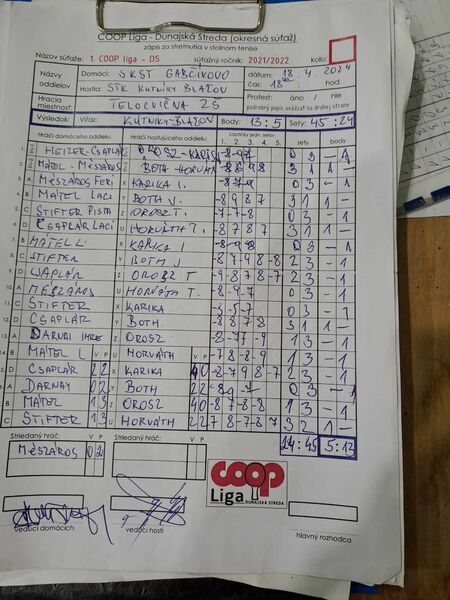 COOP Liga - Dunajská Streda (okresná súťaž)
zápis zo stretnutia v stolnom tenise
Názov súťaže: 1. COOP liga - DS súťažný ročník: 2021/2022 kolo:
Názvy oddielov Domáci: SKST GABČÍKOVO dátum: 18.4.2024
Hostia: STK KUTNÍKY BLAŽOV čas: 18
Hracia miestnosť: TELOCVIČNA ZŠ Protest: áno / nie
podrobný popis uvádzať na druhej strane
Výsledok: Víťaz: KUTNÍKY-BLAŽOV Body: 13:5 Sety: 45:24
Hráči domáceho oddielu: Hráči hosťujúceho oddielu: Loptičky jedn. setov sety body
1. 2. 3. 4. 5.
HEIZER-CSAPLÁR OROSZ-KARIKA 0 3 - 1
MATEL-MÉSZÁROS BOTH-HORVÁTH 3 1 1 -
MÉSZÁROS FERI X KARIKA I. 0 3 - 1
MATEL LACI Y BOTH J. -8 9 8 7 3 1 1 -
STIFTER PISTA Z OROSZ T. -7-7-8 0 3 - 1
CSAPLÁR LACI U HORVÁTH T. -8 7 8 7 3 1 1 -
MATEL L. X KARIKA I 0 3 - 1
STIFTER Y BOTH J -8 7 9 8 -7 2 3 - 1
Z OROSZ T -9 8 7 8 -7 2 3 - 1
MÉSZÁROS U HORVÁTH T. -8-9-7 0 3 - 1
STIFTER X KARIKA -5-5-7 0 3 - 1
CSAPLÁR Y BOTH. -8 8 7 8 3 1 1 -
DARNAI IMRE Z OROSZ 1 3 - 1
MATEL L V P U HORVÁTH V P -7 8-8-9 1 3 - 1
CSAPLÁR 2 2 X KARIKA 4 0 -8 7 9 8 -7 2 3 - 1
DARNAY 0 2 Y BOTH 2 2 0 3 - 1
MATEL 1 3 Z OROSZ 4 0 -8 7-8-8 1 3 - 1
STIFTER 1 3 U HORVÁTH 2 2 7 8-7-8 7 3 2 1 -
Striedaný hráč: V P Striedaný hráč: V P 24:45 5:13
MÉSZÁROS 0 2
COOP Liga DUNAJSKÁ STREDA
vedúci domácich vedúci hostí hlavný rozhodca